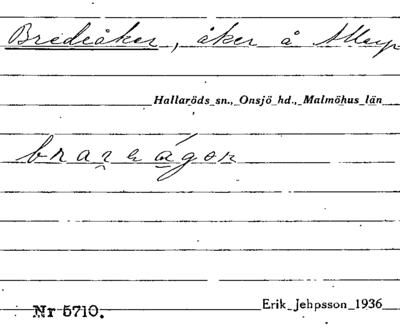 Bredeåker, åker å Allarp
Hallaröds sn., Onsjö hd., Malmöhus län
Erik Jehpsson 1936
Nr 5710.